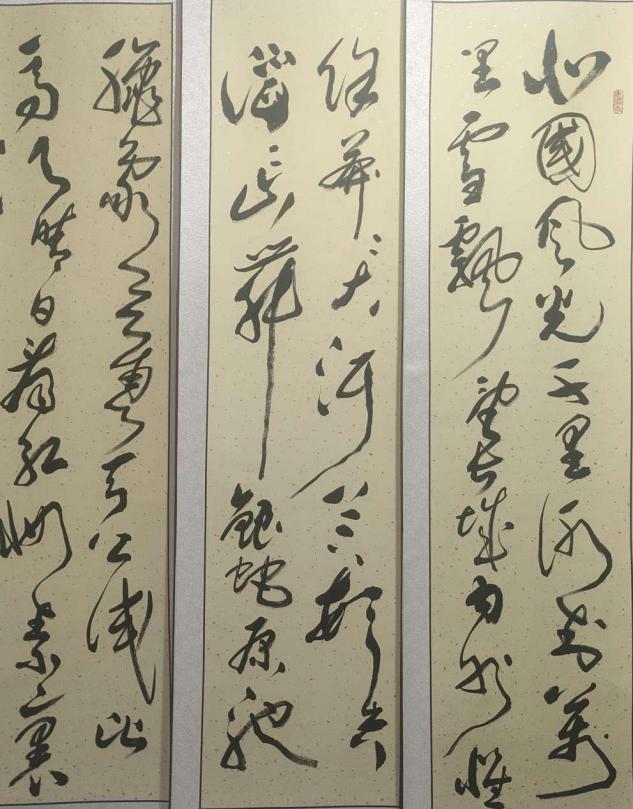 北國風光千里冰封萬
里雪飄望長城內外惟
餘莽々大河上下頓失
滔々山舞銀蛇原馳
臘象欲與天公試比
高須晴日看紅妝素裹